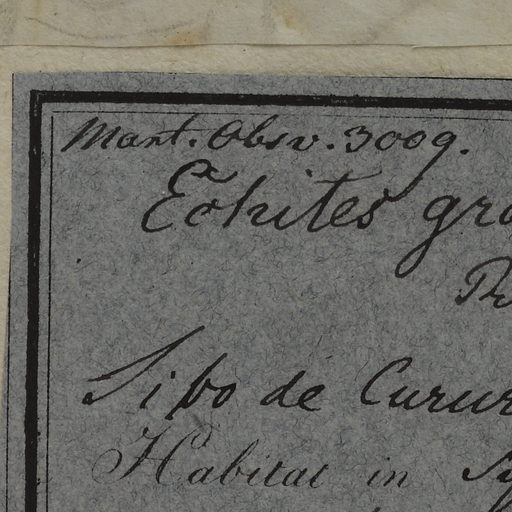 Mart. Obsv. 3009.
Echites gra
Pr
Sipo de Curur
Habitat in Sy